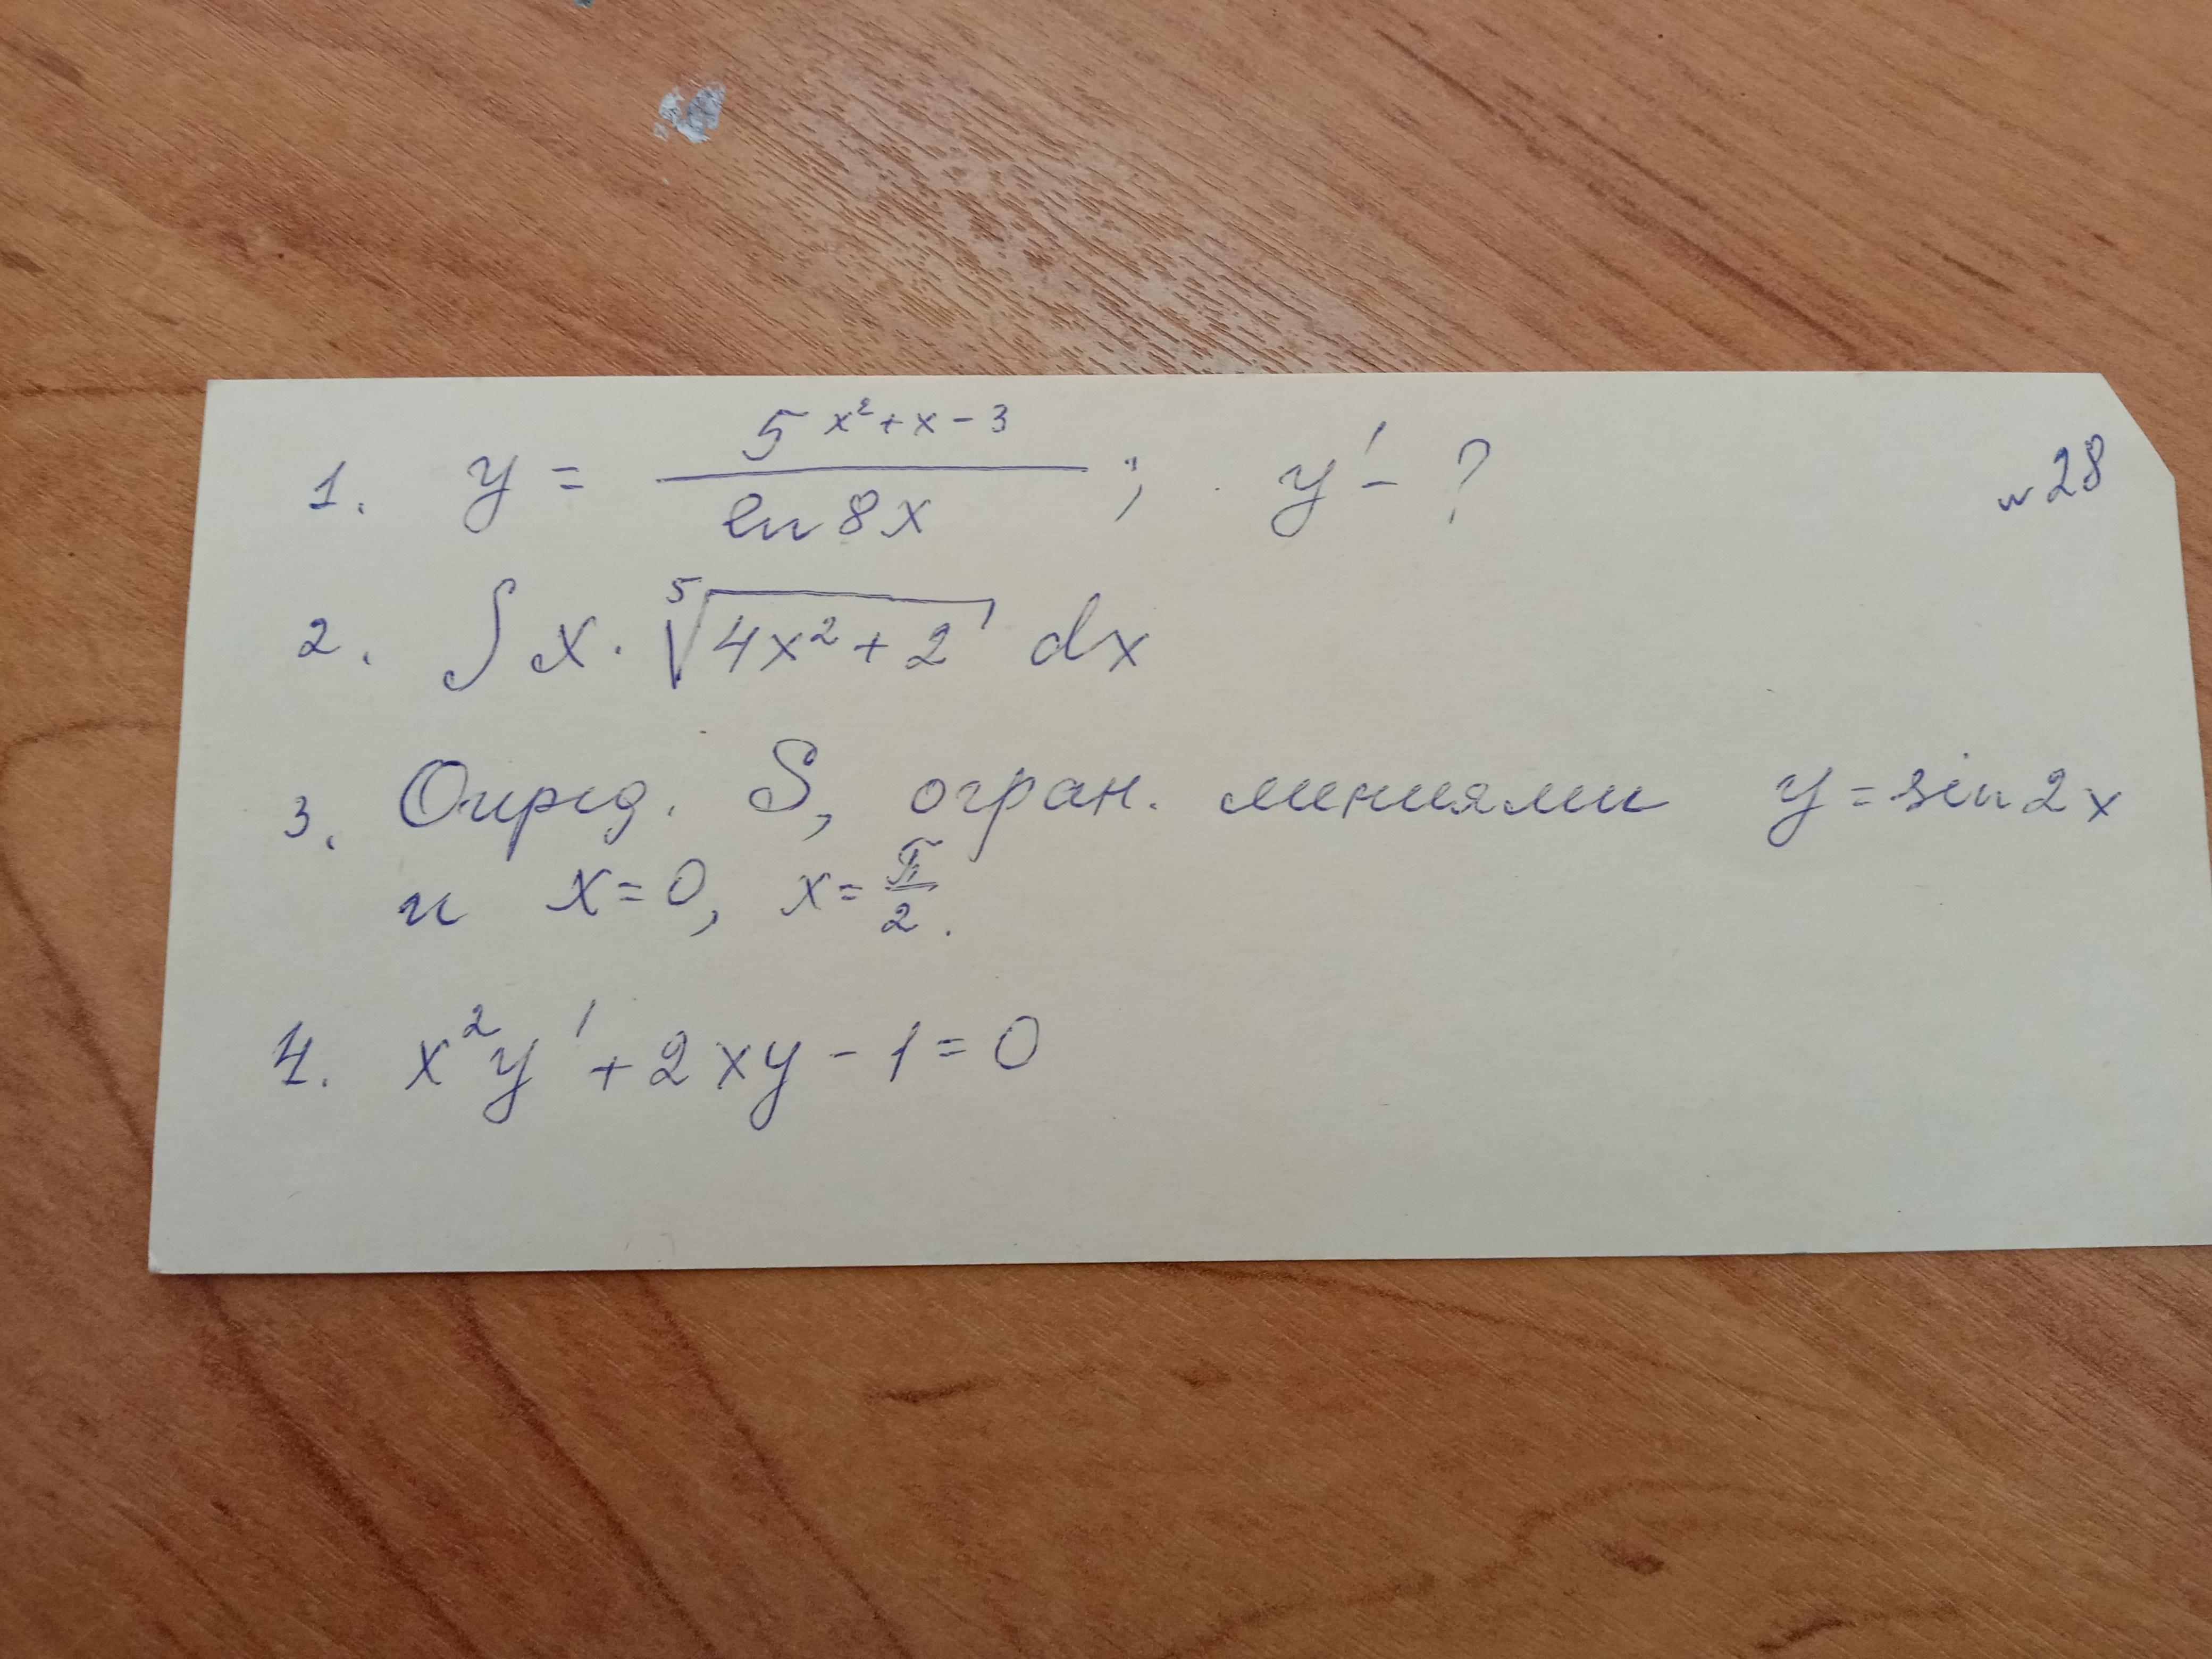 1. y = 5^(x²+x-3) / ln 8x ; y' - ? №28
2. ∫ x · ⁵√(4x²+2) dx
3. Опред. S, огран. линиями y = sin 2x
и x=0, x=π/2.
4. x²y' + 2xy - 1 = 0